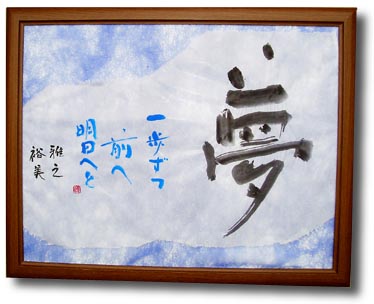 夢
一歩ずつ
前へ
明日へと
雅之
裕美